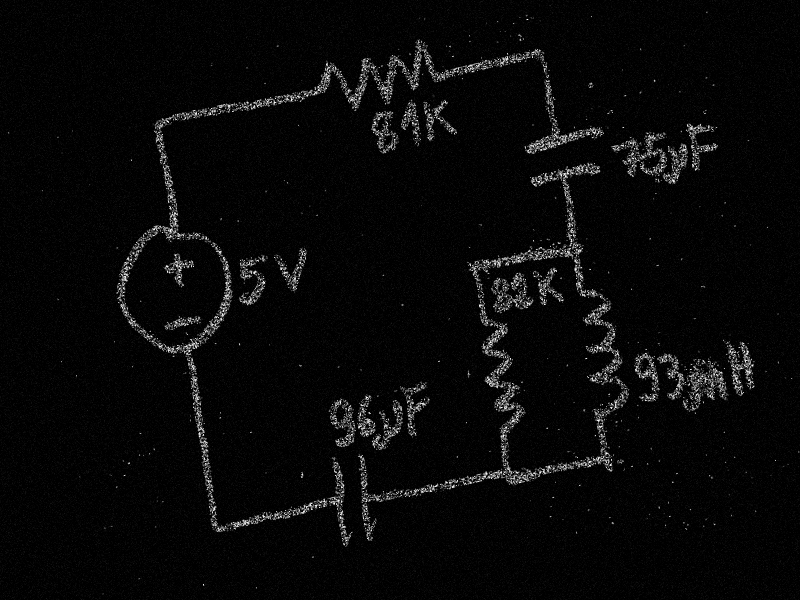 81K
75µF
5V
22K
93mH
96µF